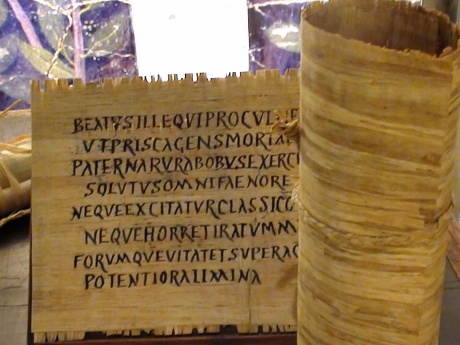 BEATVSILLEQVIPROCVLNE
VTPRISCAGENSMORTA
PATERNARVRABOBVSEXERC
SOLVTVSOMNIFAENORE
NEQVEEXCITATVRCLASSICO
NEQVEHORRETIRATVMM
FORVMQVEVITATETSVPERA
POTENTIORALIMINA